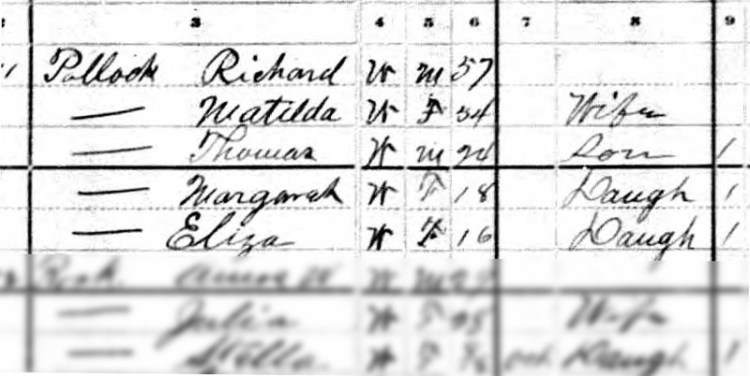 3 4 5 6 7 8 9
Pollock Richard W M 57
— Matilda W F 54 Wife
— Thomas W M 24 Son 1
— Margaret W F 18 Daugh 1
— Eliza W F 16 Daugh 1
W M
— Julia W F Wife
— Stella W F Daugh 1